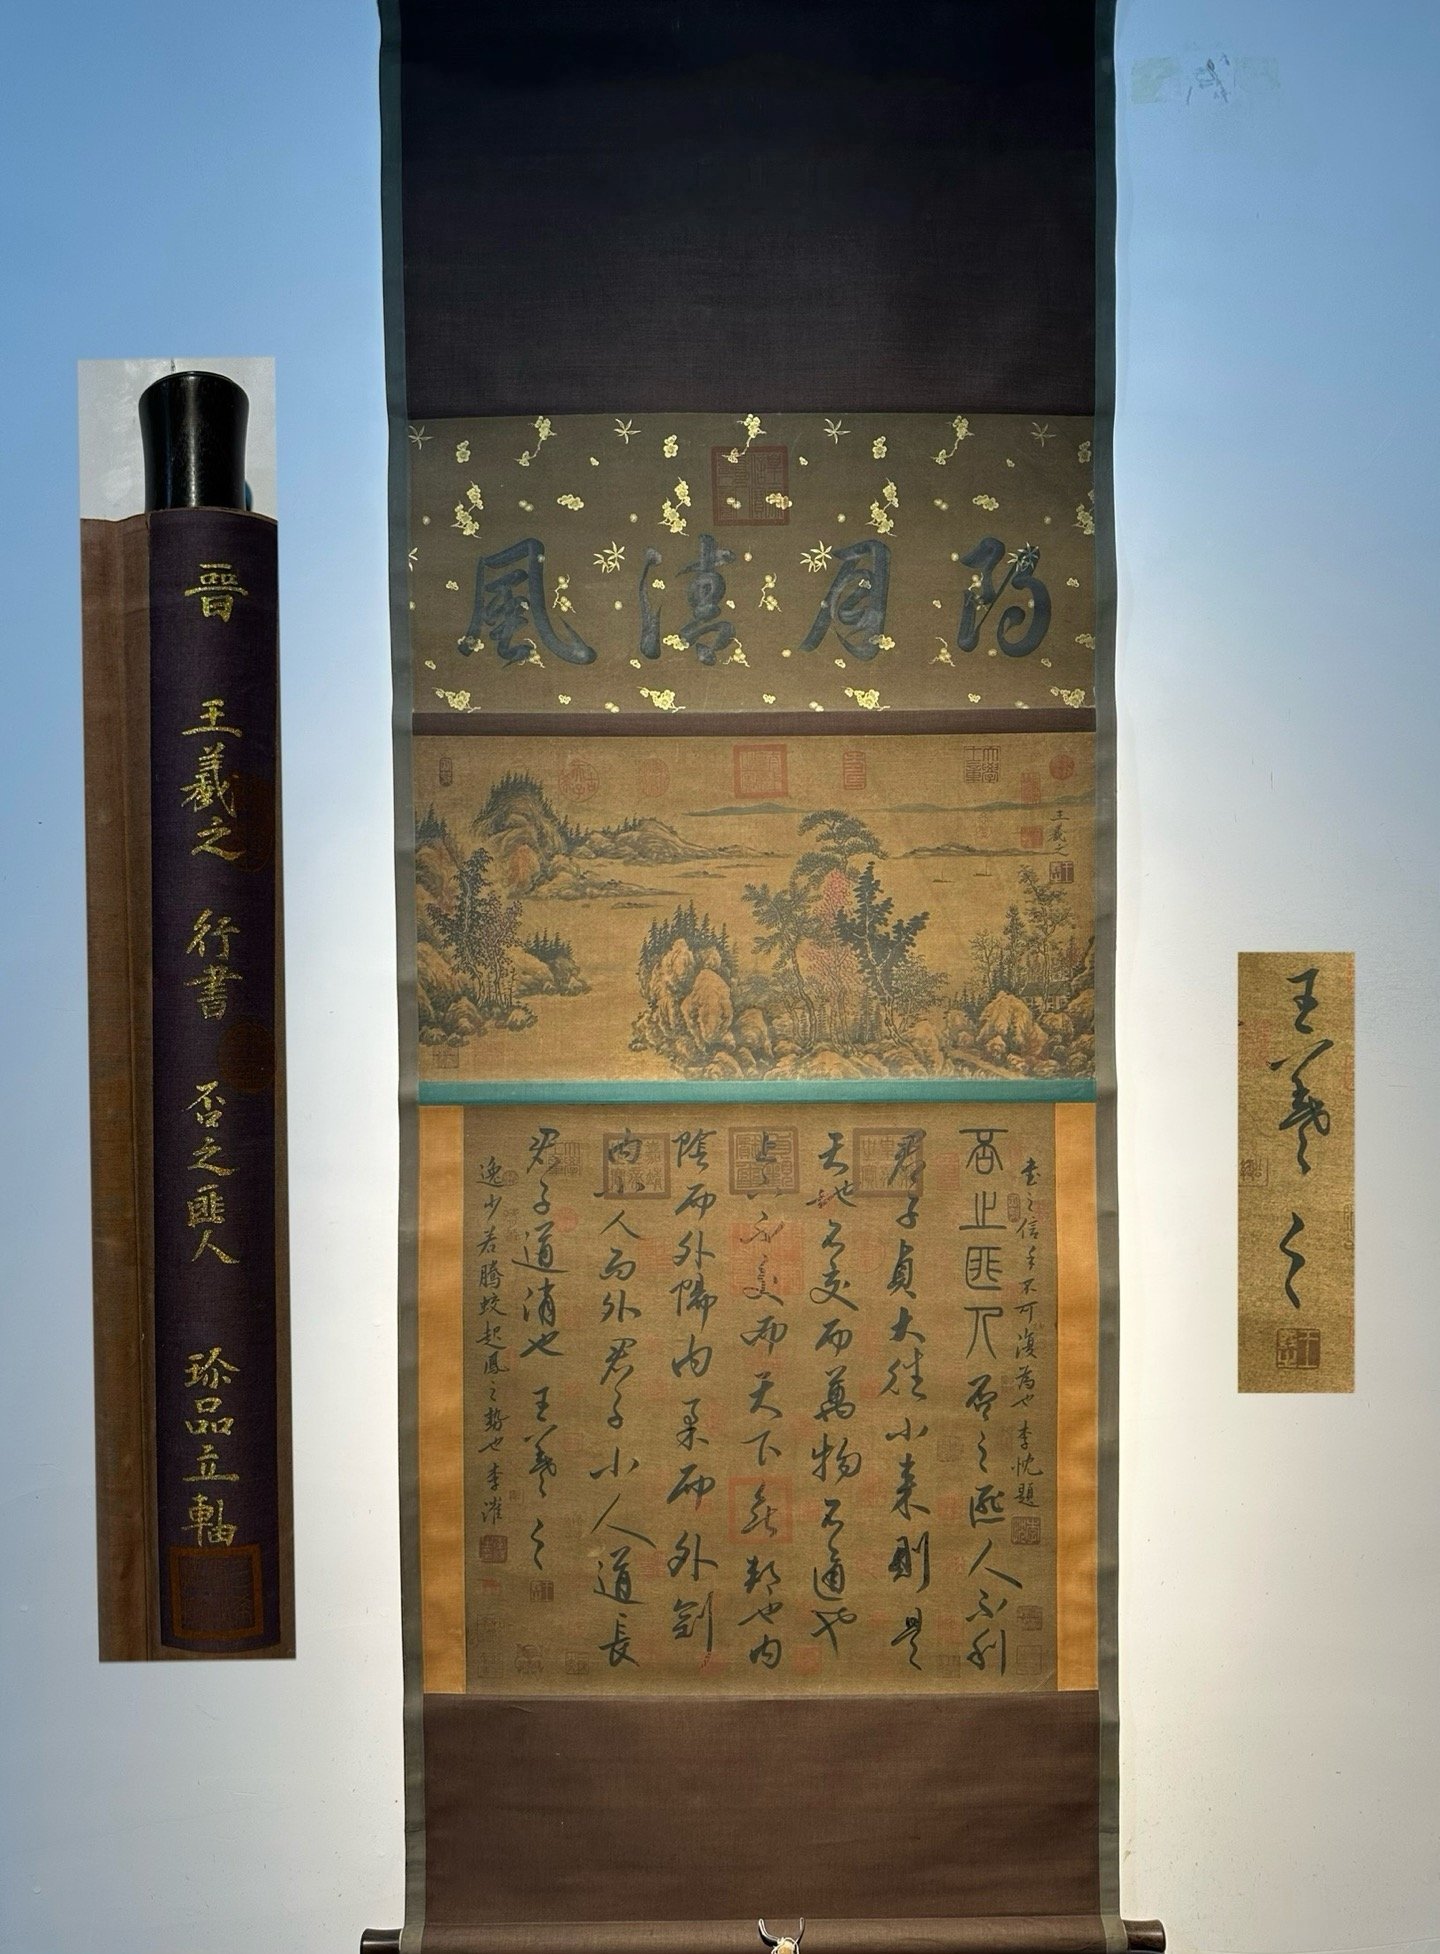 晉 王羲之 行書 否之匪人 珍品立軸
朗月清風
王羲之
書之信手不可復為也 李忱題
否止匪人 否之匪人不利
君子貞大往小來則是
天地不交而萬物不通也
上下不交而天下無邦也內
陰而外陽內柔而外剛
內小人而外君子小人道長
君子道消也 王羲之
逸少若騰蛟起鳳之勢也 李漼
王羲之